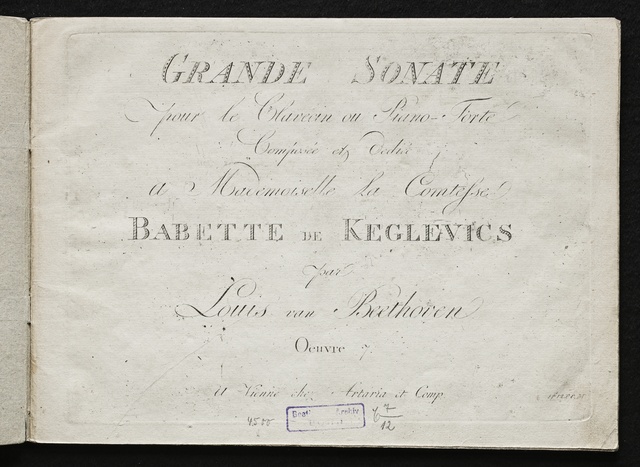 GRANDE SONATE
pour le Clavecin ou Piano-Forte
Composée et Dediée
a Mademoiselle la Comtesse
BABETTE DE KEGLEVICS
par
Louis van Beethoven
Oeuvre 7.
a Vienne chez Artaria et Comp.
4500
7
12